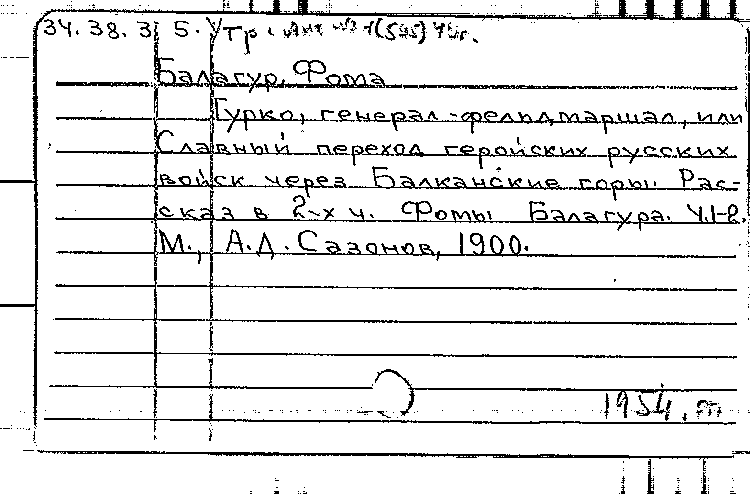 34. 38. 3. 5. Утр. Акт № 1(595)
Балагур, Фома
Гурко, генерал-фельдмаршал, или
Славный переход геройских русских
войск через Балканские горы. Рас-
сказ в 2-х ч. Фомы Балагура. Ч.1-2.
М., А.Д. Сазонов, 1900.
1954.